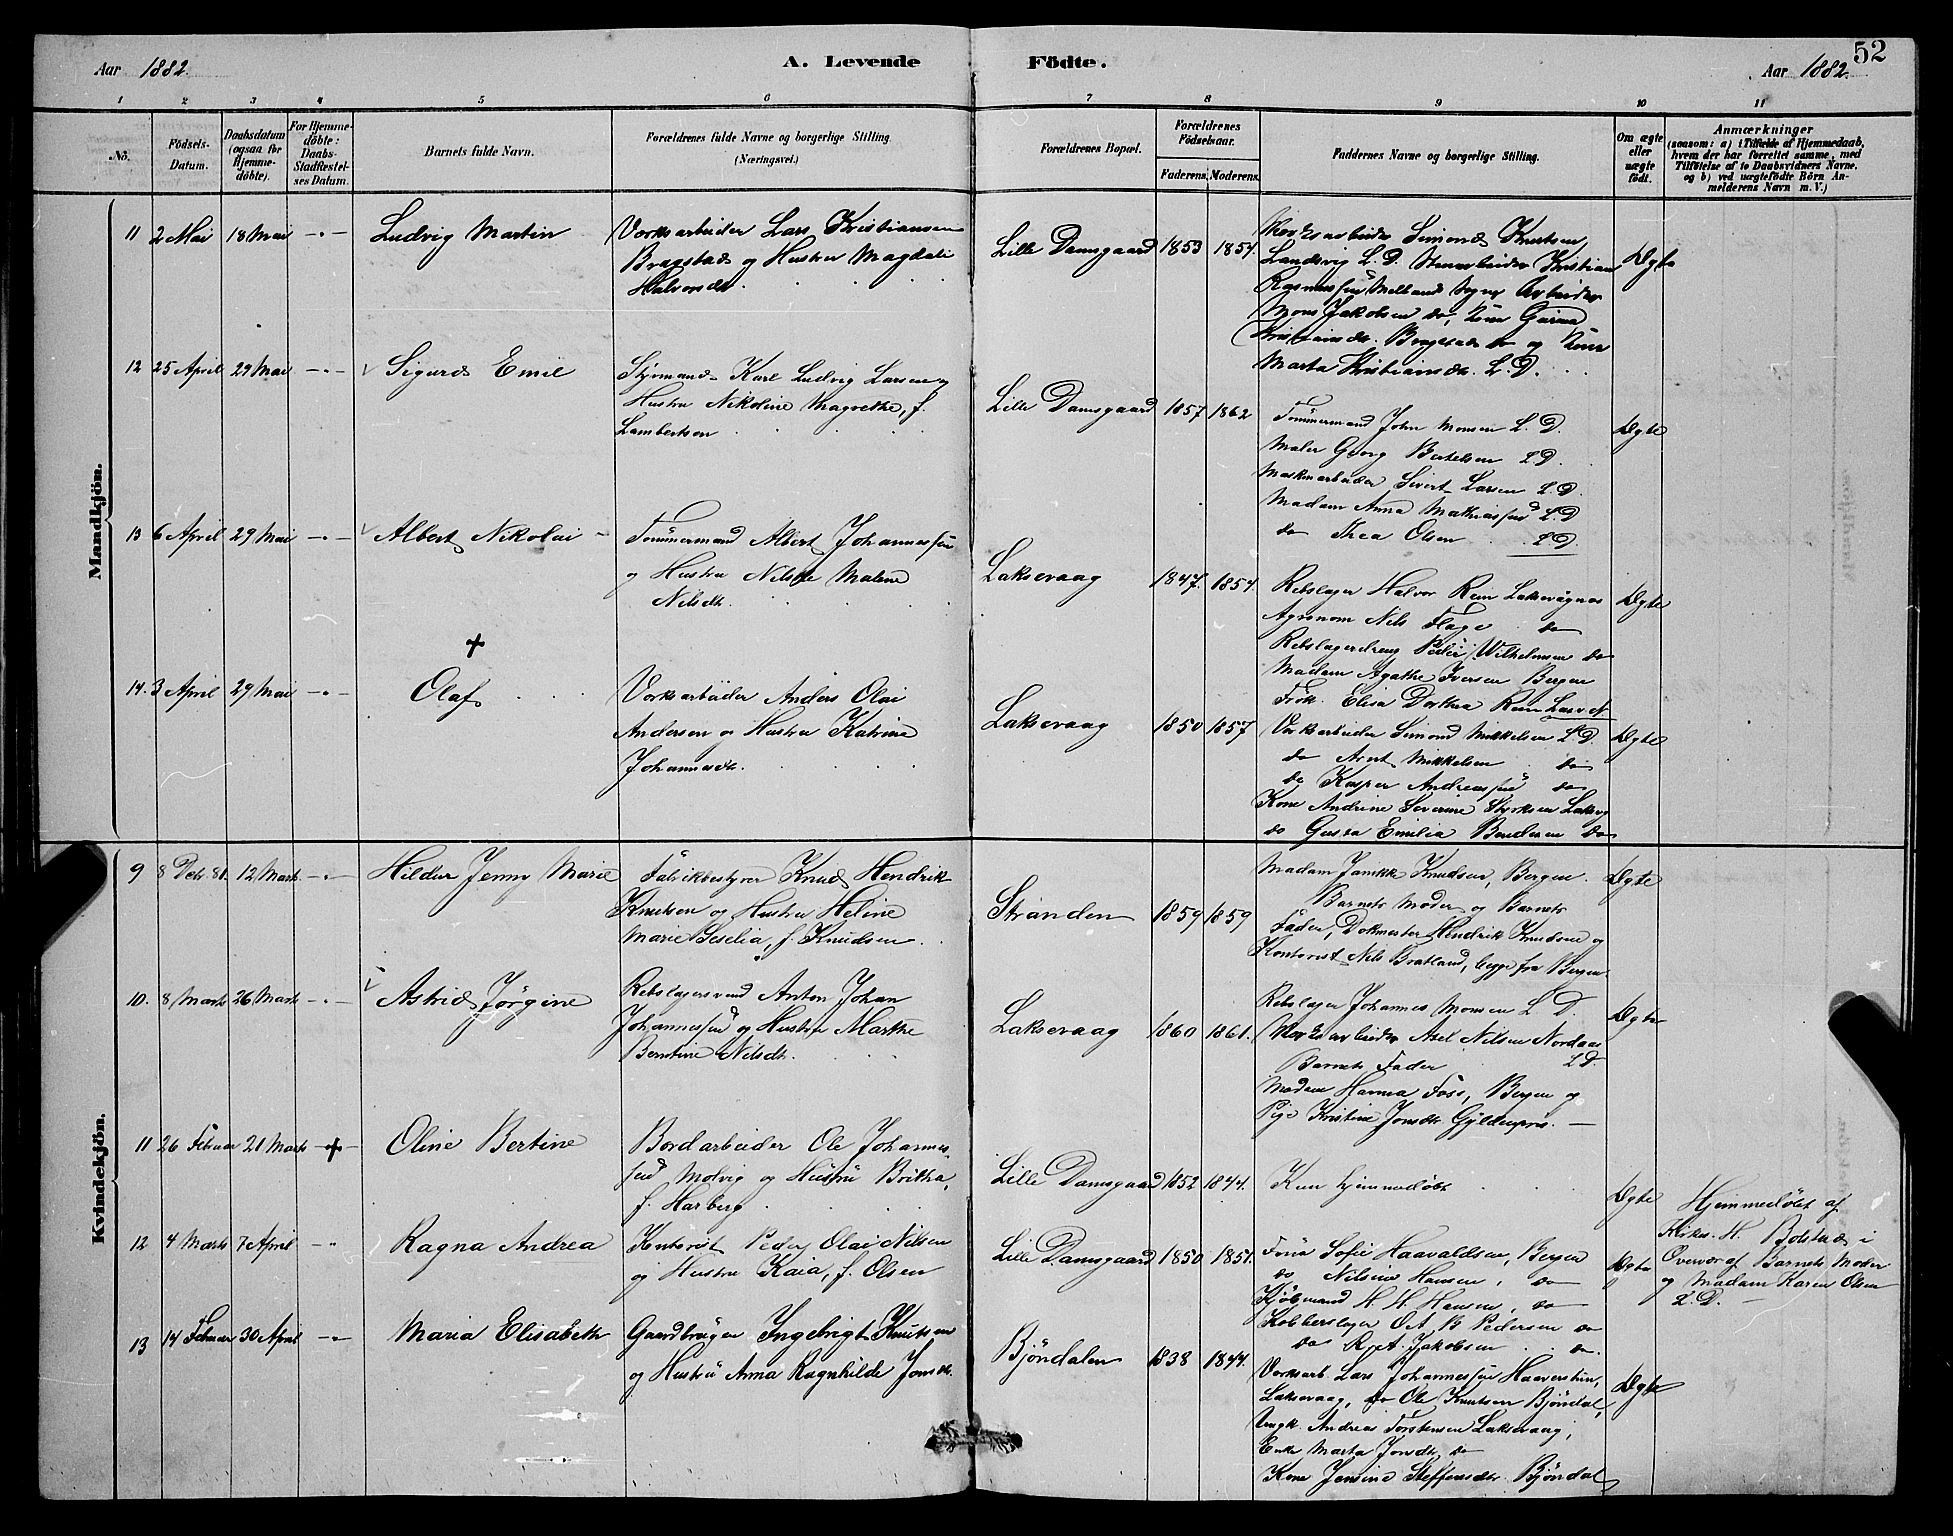 52
Aar 1882.
A. Levende Födte.
Aar 1882.
1 2 3 4 5 6 7 8 9 10 11
No.
Födsels-Datum.
Daabsdatum (ogsaa for Hjemme-döbte).
For Hjemme-döbte: Daabs-Stadfæstel-ses Datum.
Barnets fulde Navn.
Forældrenes fulde Navne og borgerlige Stilling.
(Næringsvei.)
Forældrenes Bopæl.
Forældrenes Födselsaar.
Faderens. Moderens.
Faddernes Navne og borgerlige Stilling.
Om ægte eller uægte födt.
Anmærkninger
(saasom: a) i Tilfælde af Hjemmedaab,
hvem der har forrettet samme, med
Tilföielse af to Daabsvidners Navne,
og b) ved uægtefödte Börn An-
melderens Navn m. V.)
Mandkjön.
11 2 Mai 18 Mai -"- Ludvig Martin
Værksarbeider Lars Kristiansen
Bragstad og Hustru Magdali
Halvorsdr.
Lille Damsgaard 1853 1854.
Værksarbeider Simond Knutsen
Landsvig L. D. Stenarbeider Kristian
Rasmussen Arbeider
Mons Jakobsen do, Kone
Kristiansdr. Bragstad og Kone
Marta Kristiansdr. L. D.
Ægte
12 25 April 29 Mai -"- Sigurd Emil
Styrmand Karl Ludvig Larsen og
Hustru Nikoline Magrethe, f.
Lambertsen
Lille Damsgaard 1857 1862
Tømmermand John Monsen L. D.
Maler Georg Bertelsen L D.
Maskinarbeider Sivert Larsen L. D.
Madam Anna Mathiassen L D
do Thea Olsen L D
Ægte
13 6 April 29 Mai -"- Albert Nikolai
Tømmermand Albert Johannessen
og Hustru Nilsine Malene
Nilsdr.
Laksevaag 1847. 1854
Rebslager Halvor Rem Laksevågnes
Agronom Nils Flage do
Rebslagerdreng Peder Wilhelmsen do
Madam Agathe Iversen Bergen
Frøk. Elisa Dorthea Rem
Ægte
14. 3 April 29 Mai -"- Olaf
Værksarbeider Anders Olai
Andersen og Hustru Katrine
Johannesdr.
Laksevaag 1850 1857
Værksarbeider Simond Mikkelsen L D.
do Arnt Mikkelsen do
do Kasper Andreassen do
Kone Andrine Severine Styrksen Laksev
do Gusta Emilia Bendixen do
Ægte
Kvindekjön.
9 8 Debr. 81. 12 Marts -"- Hildur Jenny Marie
Fabrikbestyrer Knud Hendrik
Knutsen og Hustru Heline
Marie Sesilia, f. Knudsen
Stranden 1859 1859
Madam Janikke Knudsen, Bergen.
Barnets Moder og Barnets
Fader, Dokmester Hendrik Knudsen og
Kontorist Nils Bratland, begge fra Bergen
Ægte
10. 8 Marts 26 Marts -"- Astrid Jørgine
Rebslagersvend Anton Johan
Johannessen og Hustru Marthe
Berntine Nilsdr.
Laksevaag 1860 1861.
Rebslager Johannes Monsen L D.
Værksarbeider Axel Nilsen Nordaas
Barnets Fader L D.
Madam Hanna Foss, Bergen og
Pige Kristine Jonsdr. Gyldenpris.
Ægte
11 26 Februar 21 Marts Oline Bertine
Bordarbeider Ole Johannes-
sen Molvig og Hustru Britha,
f. Harberg
Lille Damsgaard 1852 1844.
Kun hjemmedøbt
Ægte
Hjemmedøbt af
Kirkes. H. Bolstad i
Overvær af Barnets Moder
og Madam Karen Olsen
L. D.
12 4 Marts 7 April -"- Ragna Andrea
Kontorist Peder Olai Nilsen
og Hustru Kaia, f. Olsen
Lille Damsgaard 1850 1851.
Frue Sofie Haavaldsen, Bergen
do Nilsine Hansen, do
Kjøbmand H. H. Hansen, do
Kobberslager O. A. B Pedersen do
do R. A. Jakobsen do.
Ægte
13 14 Februar 30 April -"- Maria Elisabeth
Gaardbruger Ingebrigt Knutsen
og Hustru Anna Ragnhilde Jonsdr.
Bjöndalen 1838 1844.
Værksarb. Lars Johannessen
Laksevaag, do Ole Knutsen Bjöndal,
Ungk. Andreas Torstensen Laksevaag,
Enke Marta Jonsdr. do
Kone Jensine Steffensdr. Bjöndal
Ægte